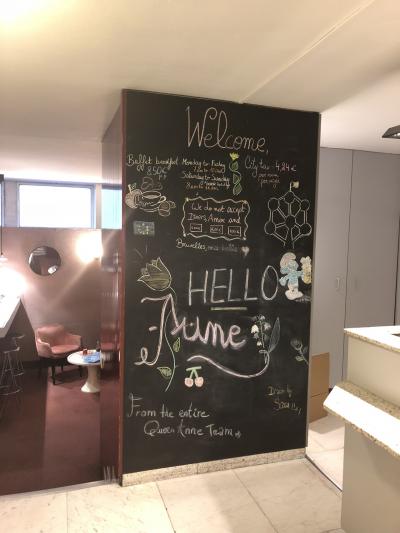 Welcome,
Buffet breakfast
8.50€
P.P
Monday to Friday
Saturday to Sunday
City tax - 4,24€
per room
per night
We do not accept
Diners, Amex and
Bruxelles, ma belle
HELLO
June
Drawn by
From the entire
Queen Anne Team